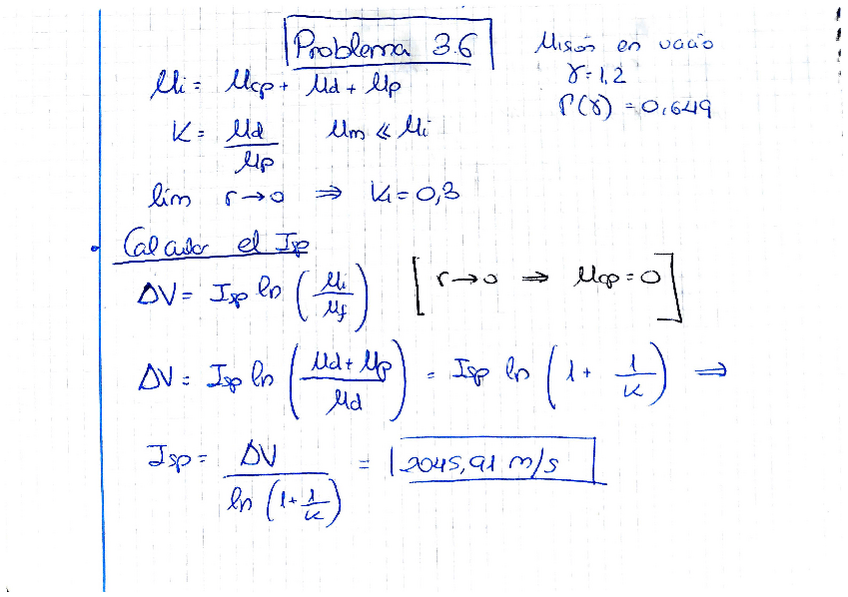 Problema 3.6
Misión en vacío
γ=1,2
Γ(γ) = 0,649
Mi = Mcp + Md + Mp
K = Md/Mp    Mm ≪ Mi
lim r→0 ⇒ K1 = 0,3
• Calculo el Isp
ΔV = Isp ln (Mi/Mf)    [r→0 ⇒ Mcp = 0]
ΔV = Isp ln ((Md + Mp)/Md) = Isp ln (1 + 1/K) ⇒
Isp = ΔV / ln (1 + 1/K) = 2045,91 m/s